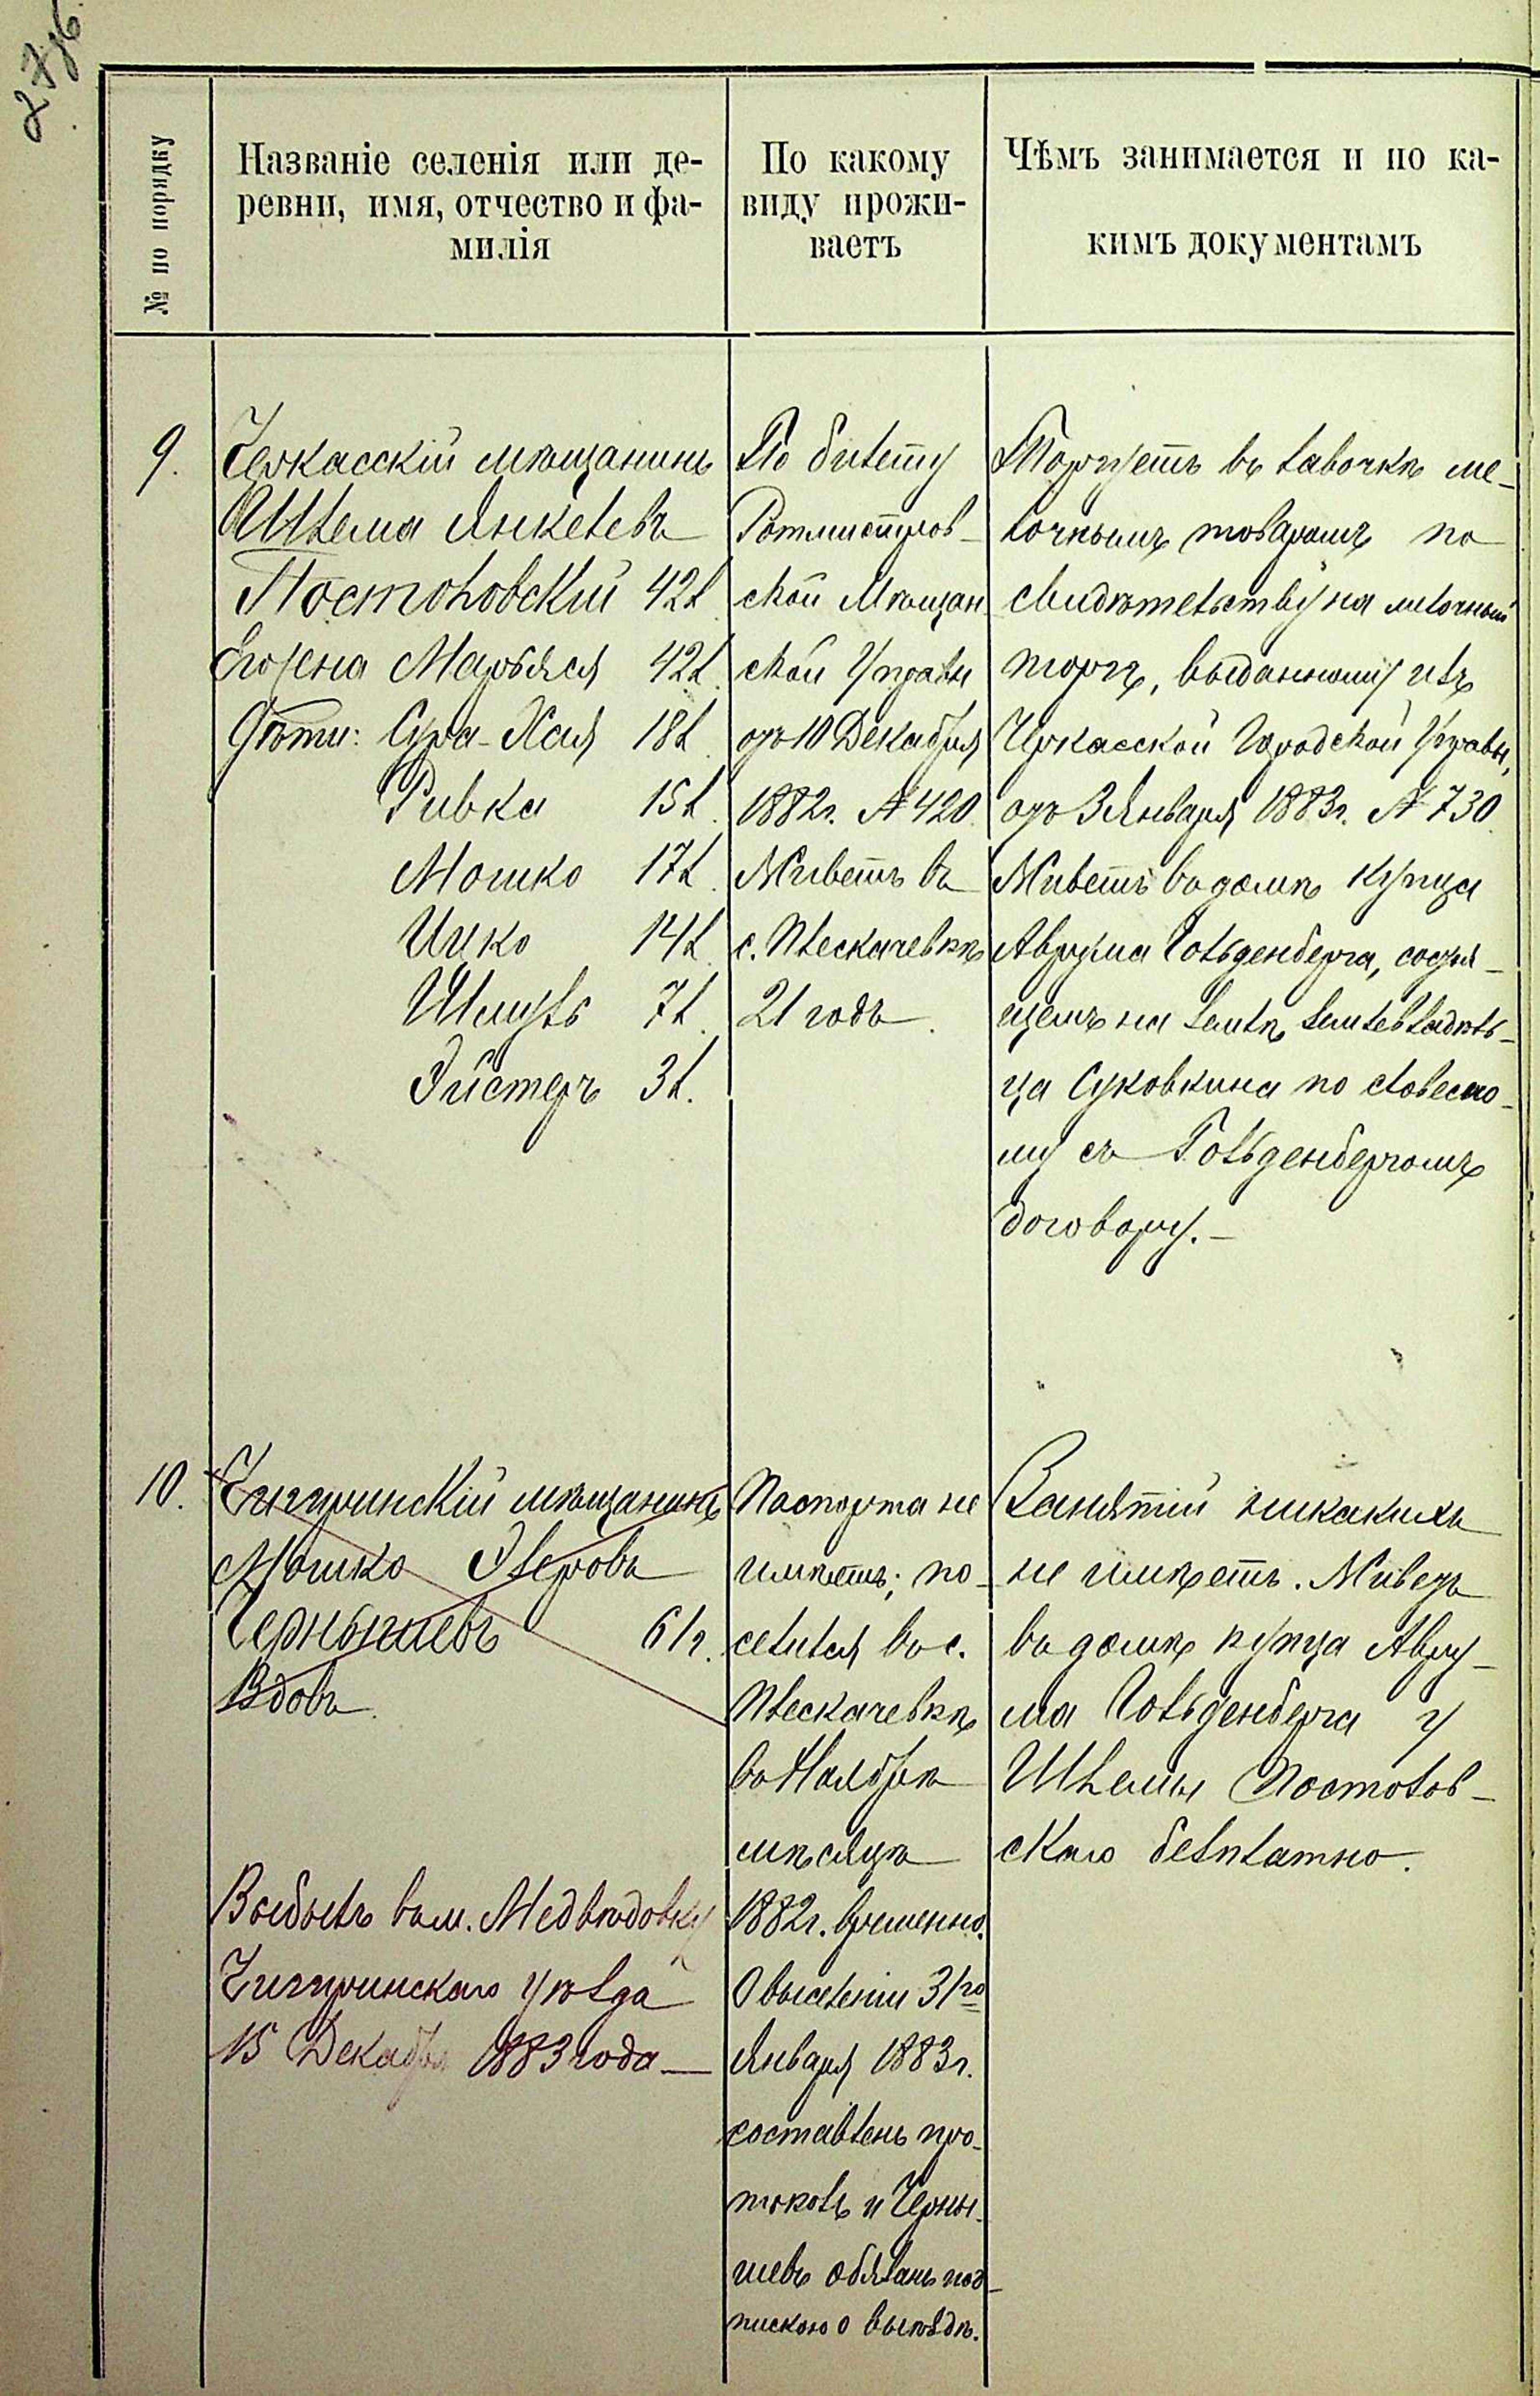 27об.
№ по порядку
Названіе селенія или де-
ревни, имя, отчество и фа-
милія
По какому
виду прожи-
ваетъ
Чѣмъ занимается и по ка-
кимъ документамъ
9.
Черкасскій мѣщанинъ
Шлема Янкелевъ
Постоловскій 42 л.
Его жена Марьяся 42 л.
Дѣти: Сура-Хая 18 л.
Ривка 15 л.
Мошко 17 л.
Ицко 14 л.
Шмуль 7 л.
Эйстеръ 3 л.
По билету
Ротмистров-
ской Мѣщан-
ской Управы
отъ 10 Декабря
1882 г. № 420.
Живетъ въ
с. Плескачевкѣ
21 годъ.
Торгуетъ въ лавочкѣ ме-
лочнымъ товаромъ по
свидѣтельству на мѣлочный
торгъ, выданному изъ
Черкасской Городской Управы,
отъ 3 Января 1883 г. № 730.
Живетъ въ домѣ купца
Аврума Гольденберга, состоя-
щемъ на землѣ землевладѣль-
ца Суковкина по словесно-
му съ Гольденбергомъ
договору.-
10.
Чигиринскій мѣщанинъ
Мошко Элеровъ
Чернышевъ 61 г.
Вдовъ.
Выбылъ въ м. Медвѣдовку
Чигиринскаго уѣзда
15 Декабря 1883 года —
Паспорта не
имѣетъ; по-
селился въ с.
Плескачевкѣ
въ Ноябрѣ
мѣсяцѣ
1882 г. временно.
О выселеніи 31го
Января 1883 г.
составленъ про-
токолъ и Черны-
шевъ обязанъ под-
пискою о выѣздѣ.
Занятій никакихъ
не имѣетъ. Живетъ
въ домѣ купца Авру-
ма Гольденберга у
Шлемы Постолов-
скаго безплатно.